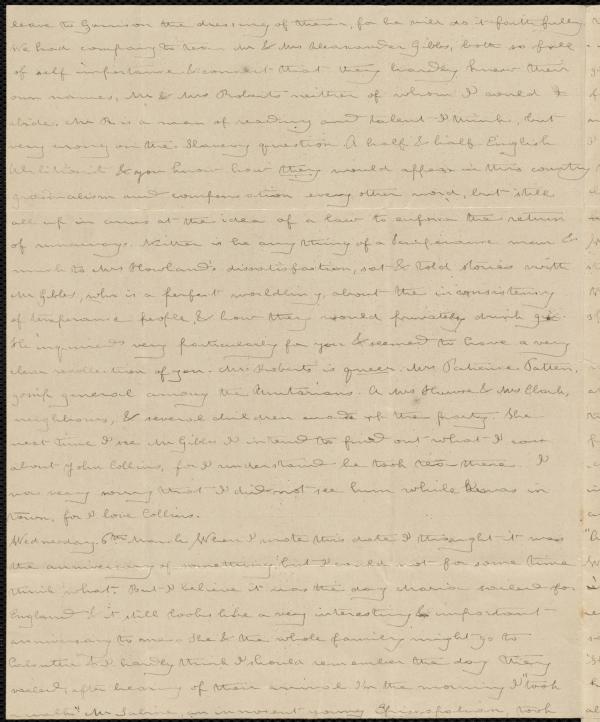 leave to Garrison the dressing of them, for he will do it faithfully
We had company to tea Mr & Mrs Alexander Gibbs, both so full
of self importance & conceit that they hardly knew their
own names, Mr & Mrs Roberts neither of whom I could
abide. Mr R is a man of reading and talent I think, but
very wrong on the Slavery question. A half & half English
Abolitionist & you know how they would appear in this country
gradualism and compensation every other word, but still
all up in arms at the idea of a law to enforce the return
of runaways. Neither is he any thing of a temperance man &
much to Mrs Howland's dissatisfaction, sat & told stories with
Mr Gibbs, who is a perfect worldling, about the inconsistency
of temperance people, & how they would privately drink gin.
He inquired very particularly for you & seemed to have a very
clear recollection of you. Mrs Roberts is queer. Mrs Patience Patten,
gossip general among the Unitarians. A Mrs & Mrs Clark,
neighbours, & several children made up the party. The
next time I see Mr Gibbs I intend to find out what I can
about John Collins, for I understand he took tea there. I
was very sorry that I did not see him while he was in
town, for I love Collins.
Wednesday. 6th March. When I wrote this date I thought it was
the anniversary of something but I could not for some time
think what. But I believe it was the day Maria sailed for
England & it still looks like a very interesting & important
anniversary to me. She & the whole family might go to
Calcutta & I hardly think I should remember the day they
sailed, after hearing of their arrival. In the morning I "took
a walk" Mr Sabine, an innocent young Episcopalian, took